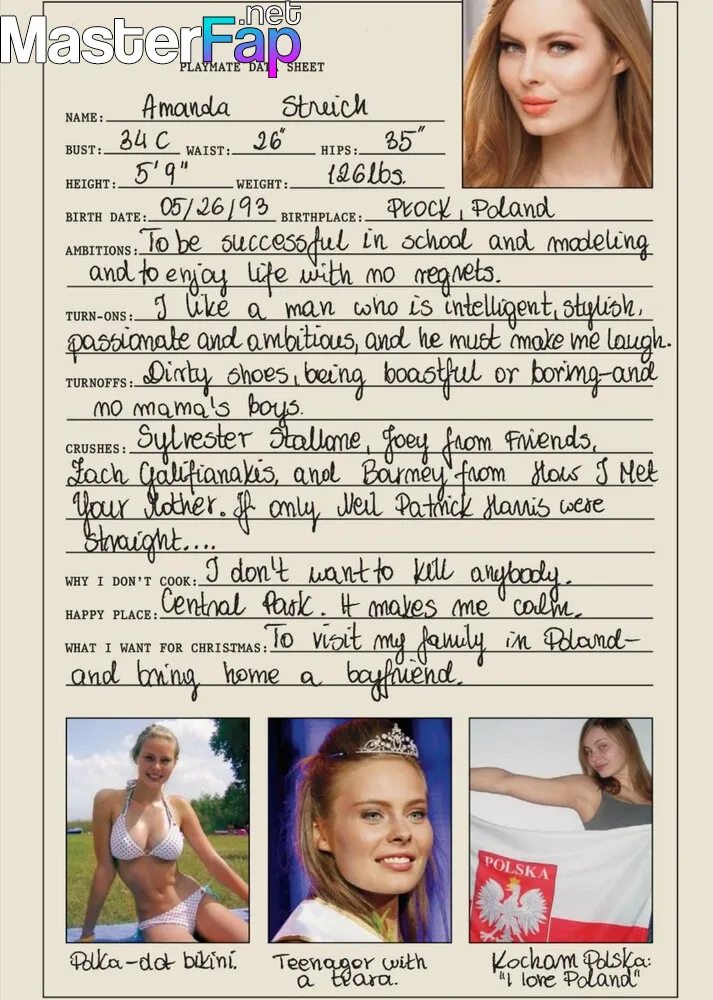 MasterFap.net
PLAYMATE DATA SHEET
NAME: Amanda Streich
BUST: 34 C WAIST: 26" HIPS: 35"
HEIGHT: 5'9" WEIGHT: 126 lbs.
BIRTH DATE: 05/26/93 BIRTHPLACE: PŁOCK, Poland
AMBITIONS: To be successful in school and modeling
and to enjoy life with no regrets.
TURN-ONS: I like a man who is intelligent, stylish,
passionate and ambitious, and he must make me laugh.
TURNOFFS: Dirty shoes, being boastful or boring—and
no mama's boys.
CRUSHES: Sylvester Stallone, Joey from Friends,
Zach Galifianakis, and Barney from How I Met
Your Mother. If only Neil Patrick Harris were
straight....
WHY I DON'T COOK: I don't want to kill anybody.
HAPPY PLACE: Central Park. It makes me calm.
WHAT I WANT FOR CHRISTMAS: To visit my family in Poland—
and bring home a boyfriend.
POLSKA
Polka-dot bikini.
Teenager with
a tiara.
Kocham Polska:
"I love Poland"